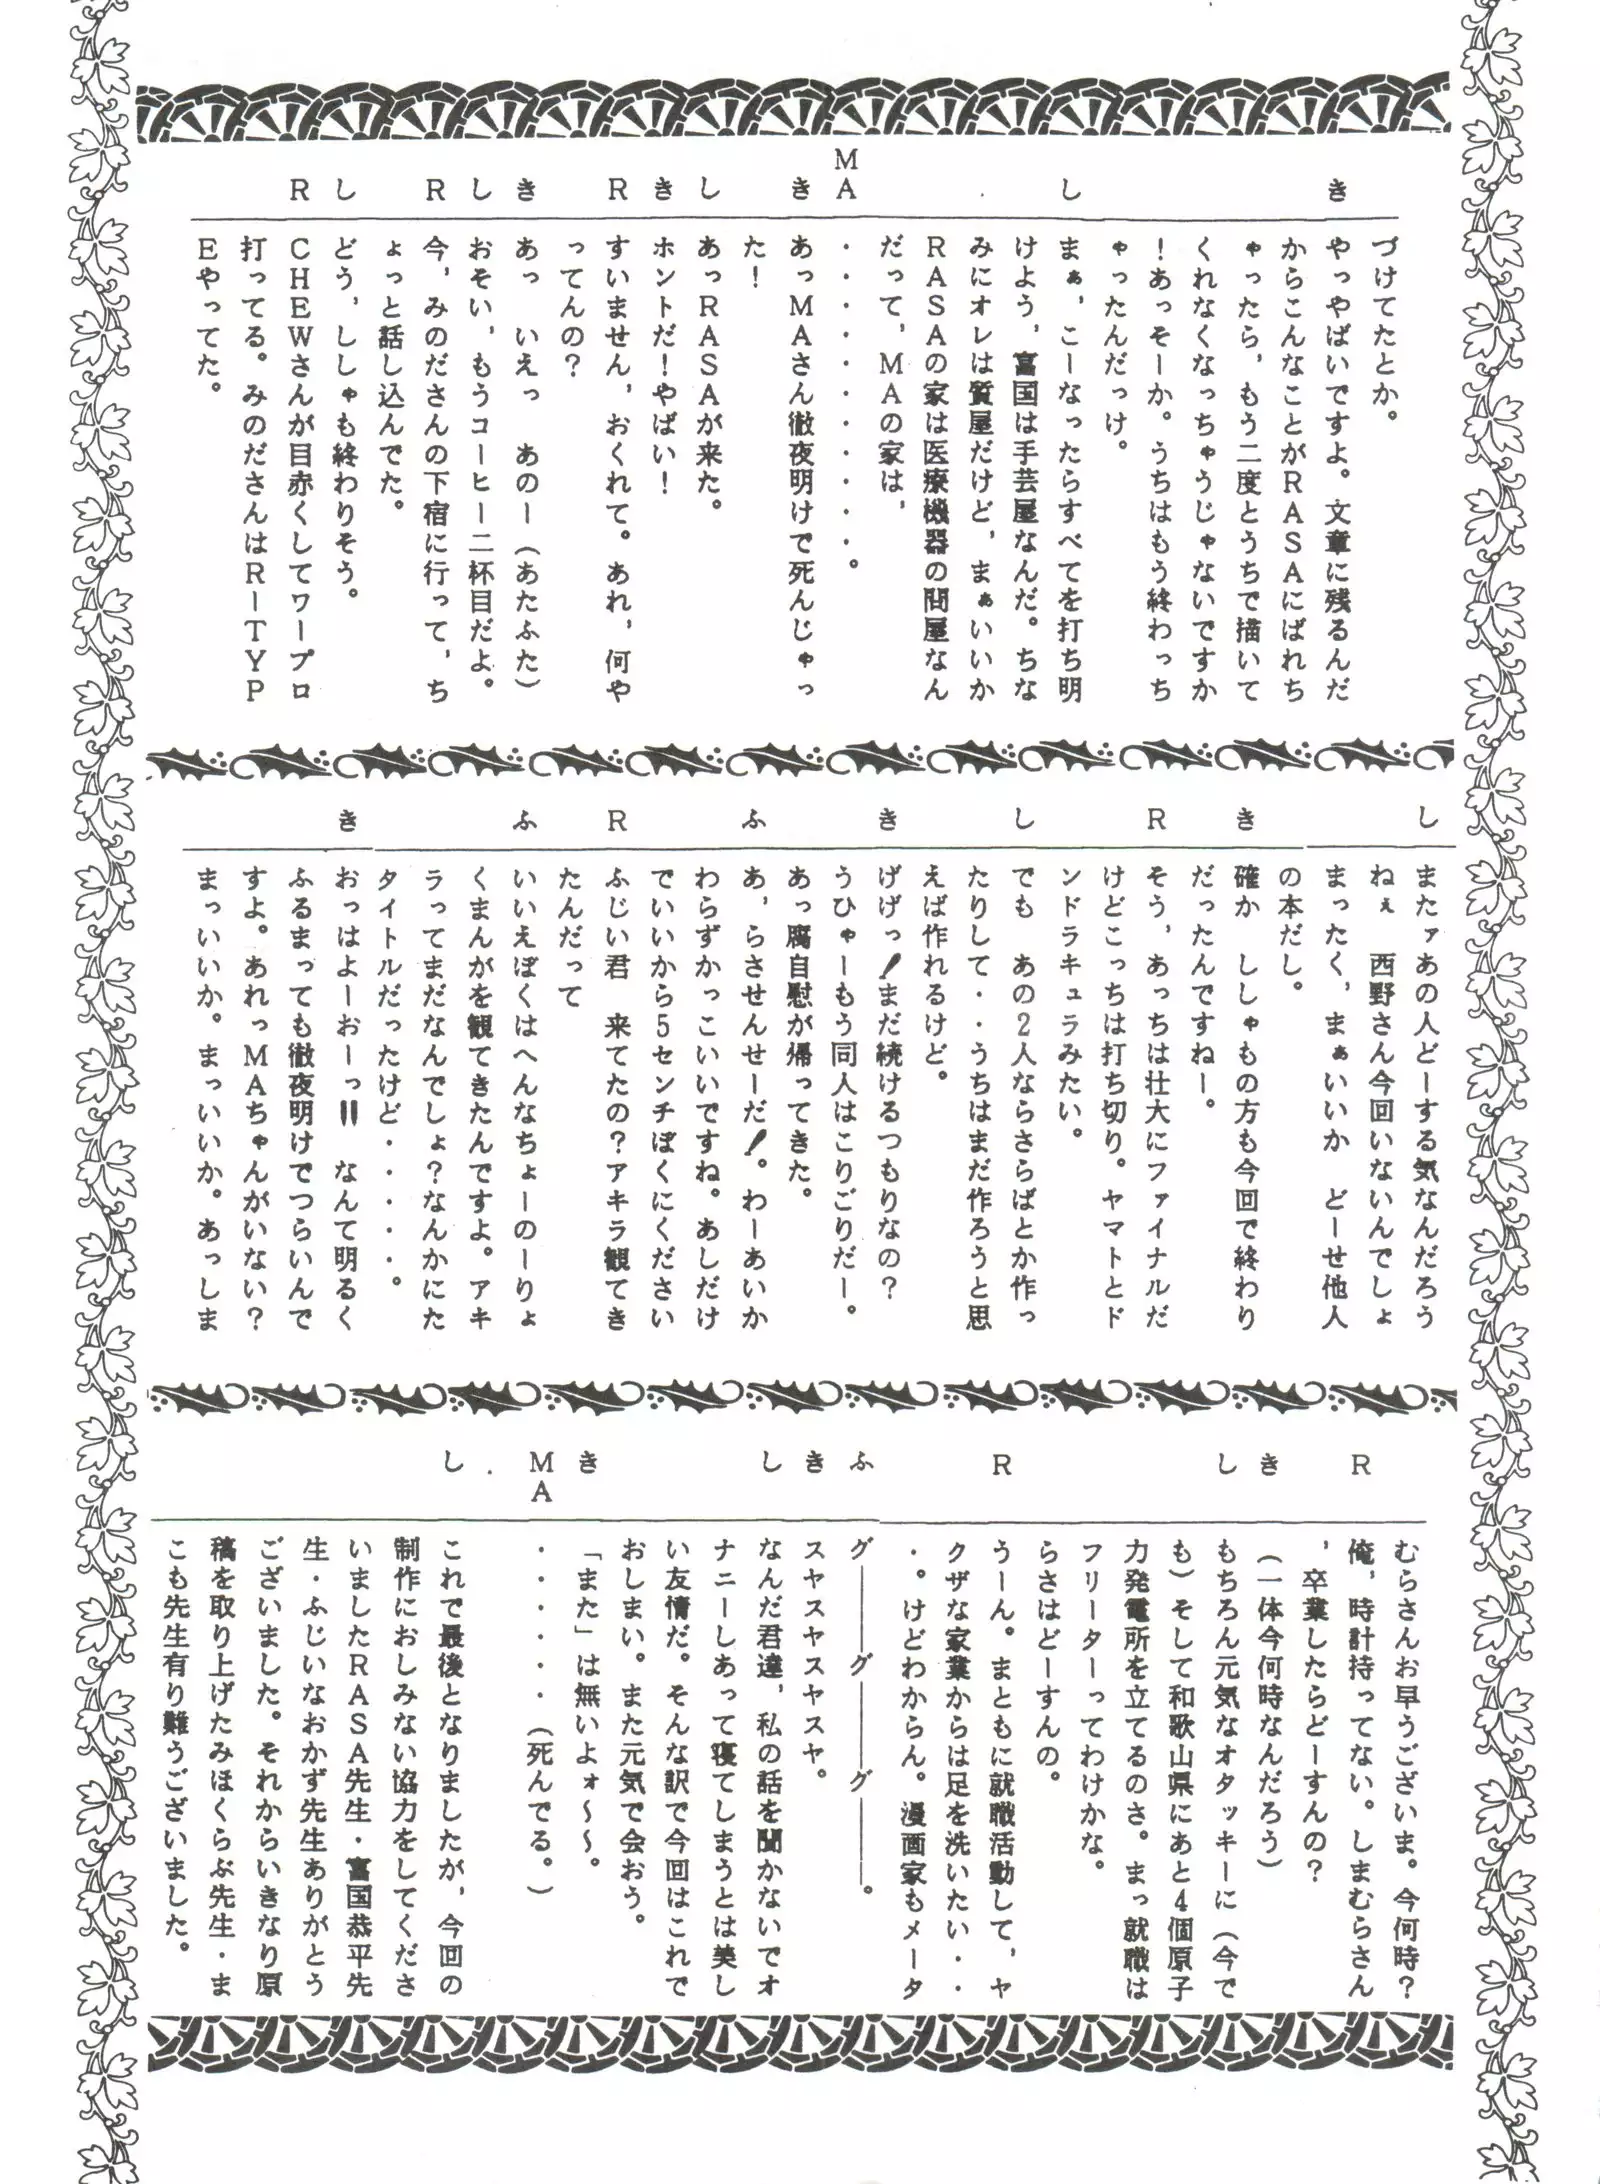 づけてたとか。
き やっやばいですよ。文章に残るんだ
からこんなことがRASAにばれち
ゃったら，もう二度とうちで描いて
くれなくなっちゃうじゃないですか
！あっそーか。うちはもう終わっち
ゃったんだっけ。
し まぁ，こーなったらすべてを打ち明
けよう，富国は手芸屋なんだ。ちな
みにオレは質屋だけど，まぁいいか
RASAの家は医療機器の問屋なん
だって，MAの家は，
MA ・・・・・・・・・・・・。
き あっMAさん徹夜明けで死んじゃっ
た！
し あっRASAが来た。
き ホントだ！やばい！
R すいません，おくれて。あれ，何や
ってんの？
き あっ　いえっ　あのー（あたふた）
し おそい，もうコーヒー二杯目だよ。
R 今，みのださんの下宿に行って，ち
ょっと話し込んでた。
し どう，ししゃも終わりそう。
R CHEWさんが目赤くしてワープロ
打ってる。みのださんはR－TYP
Eやってた。
し またァあの人どーする気なんだろう
ねぇ　西野さん今回いないんでしょ
まったく，まぁいいか　どーせ他人
の本だし。
き 確か　ししゃもの方も今回で終わり
だったんですねー。
R そう，あっちは壮大にファイナルだ
けどこっちは打ち切り。ヤマトとド
ンドラキュラみたい。
し でも　あの2人ならさらばとか作っ
たりして・・うちはまだ作ろうと思
えば作れるけど。
き げげっ！まだ続けるつもりなの？
うひゃーもう同人はこりごりだー。
あっ腐自慰が帰ってきた。
ふ あ，らさせんせーだ！。わーあいか
わらずかっこいいですね。あしだけ
でいいから5センチぼくにください
R ふじい君　来てたの？アキラ観てき
たんだって
ふ いいえぼくはへんなちょーのーりょ
くまんがを観てきたんですよ。アキ
ラってまだなんでしょ？なんかにた
タイトルだったけど・・・・・。
き おっはよーおーっ!!　なんて明るく
ふるまっても徹夜明けでつらいんで
すよ。あれっMAちゃんがいない？
まっいいか。まっいいか。あっしま
むらさんお早うございま。今何時？
R 俺，時計持ってない。しまむらさん
，卒業したらどーすんの？
き （一体今何時なんだろう）
し もちろん元気なオタッキーに（今で
も）そして和歌山県にあと4個原子
力発電所を立てるのさ。まっ就職は
フリーターってわけかな。
らさはどーすんの。
R うーん。まともに就職活動して，ヤ
クザな家業からは足を洗いたい・・
・。けどわからん。漫画家もメータ
ふ グ――グ――グ――。
き スヤスヤスヤスヤ。
し なんだ君達，私の話を聞かないでオ
ナニーしあって寝てしまうとは美し
い友情だ。そんな訳で今回はこれで
おしまい。また元気で会おう。
き 「また」は無いよォ～～。
MA ・・・・・・（死んでる。）
し これで最後となりましたが，今回の
制作におしみない協力をしてくださ
いましたRASA先生・富国恭平先
生・ふじいなおかず先生ありがとう
ございました。それからいきなり原
稿を取り上げたみほくらぶ先生・ま
こも先生有り難うございました。